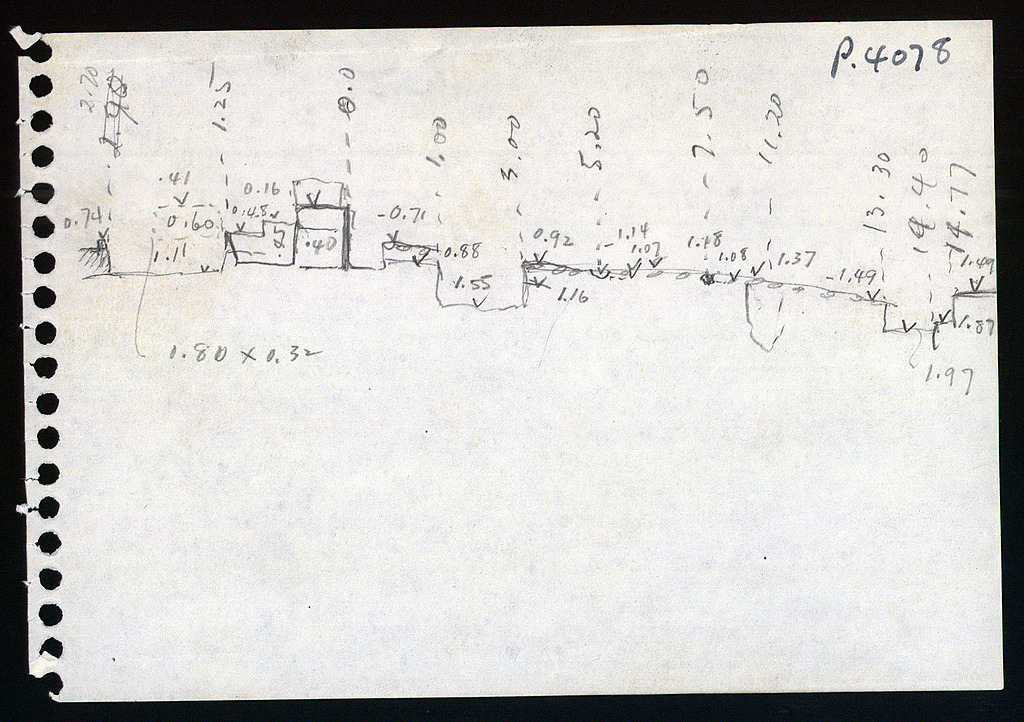 P.4078
2.70
1.25
0.0
1.00
3.00
5.20
7.50
11.20
13.30
14.40
14.77
.41
0.16
0.74
0.60
0.48
-0.71
1.11
.40
0.88
0.92
-1.14
1.07
1.18
1.08
1.37
-1.49
1.49
1.55
1.16
1.87
0.80 x 0.32
1.97